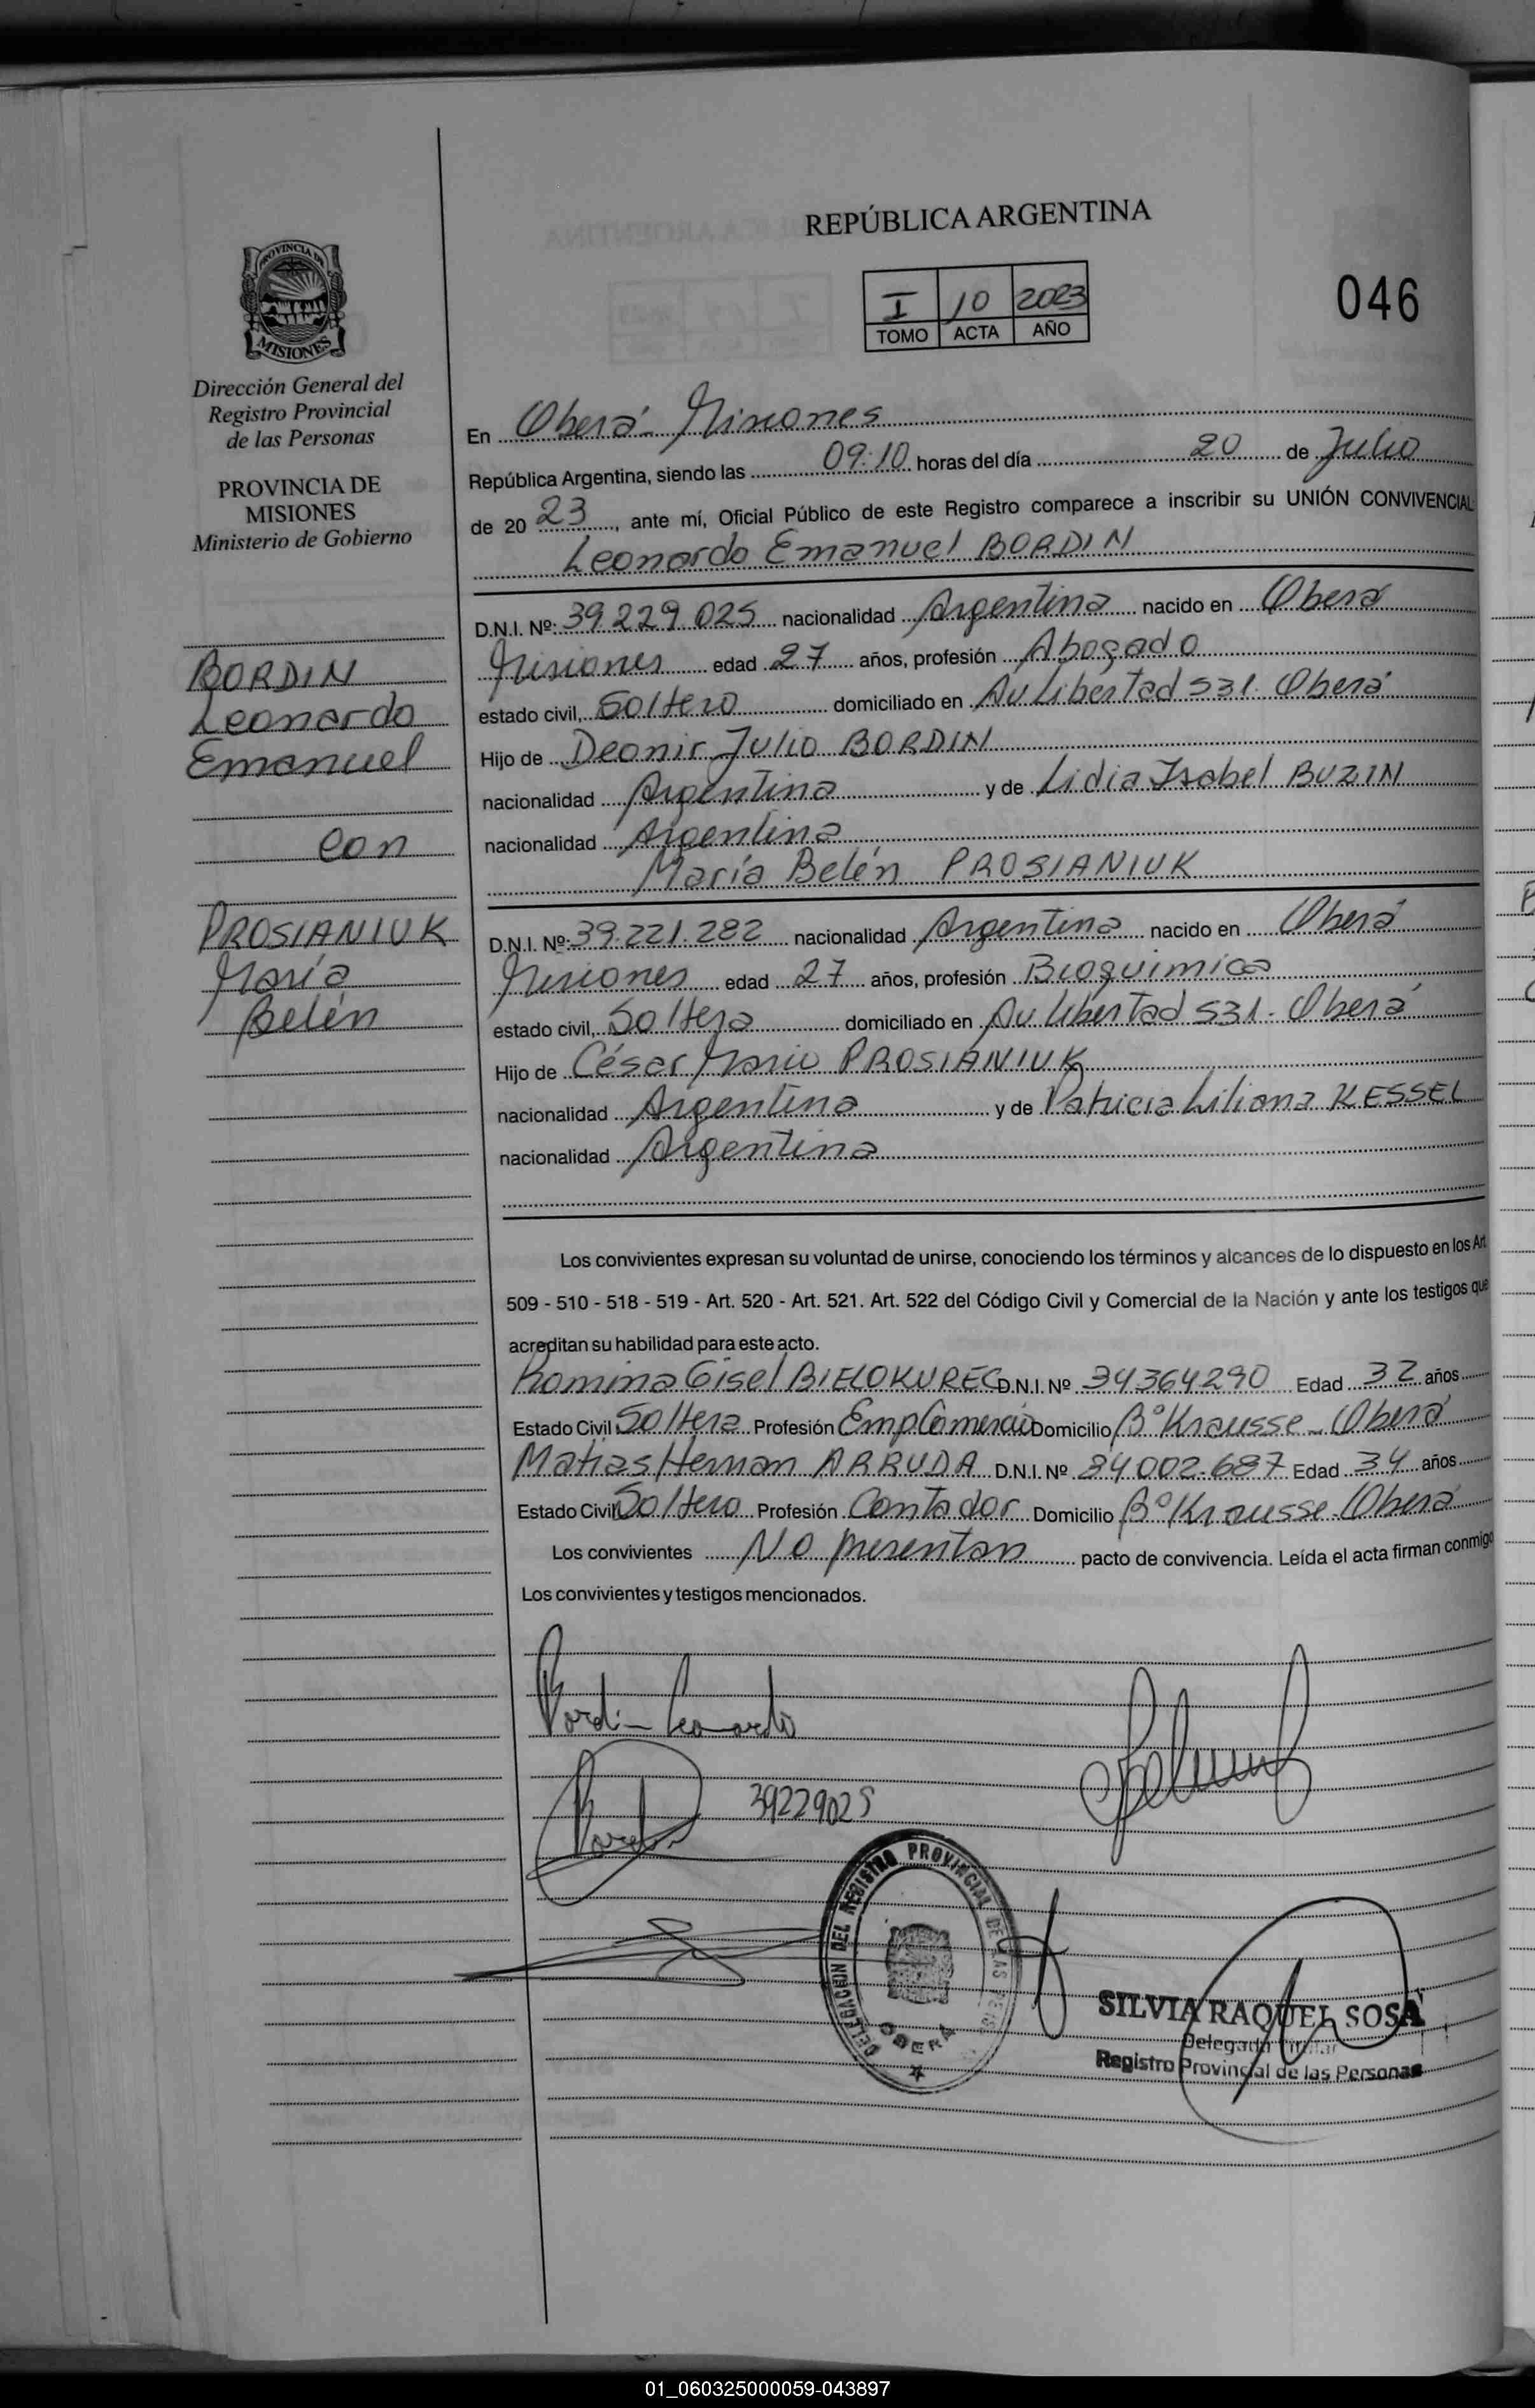 REPÚBLICA ARGENTINA
I 10 2023
TOMO ACTA AÑO
046
PROVINCIA DE
MISIONES
Dirección General del
Registro Provincial
de las Personas
PROVINCIA DE
MISIONES
Ministerio de Gobierno
BORDIN
Leonardo
Emanuel
con
PROSIANIUK
María
Belén
En Oberá - Misiones
República Argentina, siendo las 09:10 horas del día 20 de Julio
de 20 23, ante mí, Oficial Público de este Registro comparece a inscribir su UNIÓN CONVIVENCIAL
Leonardo Emanuel BORDIN
D.N.I. Nº: 39.229.025 nacionalidad Argentina nacido en Oberá
Misiones edad 27 años, profesión Abogado
estado civil, Soltero domiciliado en Av Libertad 531. Oberá
Hijo de Deonir Julio BORDIN
nacionalidad Argentina y de Lidia Isabel BUZIN
nacionalidad Argentina
María Belén PROSIANIUK
D.N.I. Nº: 39.221.282 nacionalidad Argentina nacido en Oberá
Misiones edad 27 años, profesión Bioquímica
estado civil, Soltera domiciliado en Av Libertad 531 - Oberá
Hijo de César Mario PROSIANIUK
nacionalidad Argentina y de Patricia Liliana KESSEL
nacionalidad Argentina
Los convivientes expresan su voluntad de unirse, conociendo los términos y alcances de lo dispuesto en los Art.
509 - 510 - 518 - 519 - Art. 520 - Art. 521. Art. 522 del Código Civil y Comercial de la Nación y ante los testigos que
acreditan su habilidad para este acto.
Romina Gisel BIELOKUREC D.N.I. Nº 34364290 Edad 32 años
Estado Civil Soltera Profesión Emp Comercio Domicilio Bº Krausse - Oberá
Matias Hernan ARRUDA D.N.I. Nº 34.002.687 Edad 34 años
Estado Civil Soltero Profesión Contador Domicilio Bº Krausse - Oberá
Los convivientes No presentan pacto de convivencia. Leída el acta firman conmigo
Los convivientes y testigos mencionados.
Bordin Leonardo
39229025
DELEGACION DEL REGISTRO PROVINCIAL DE LAS
OBERA
SILVIA RAQUEL SOSA
Delegada Titular
Registro Provincial de las Personas
01_060325000059-043897